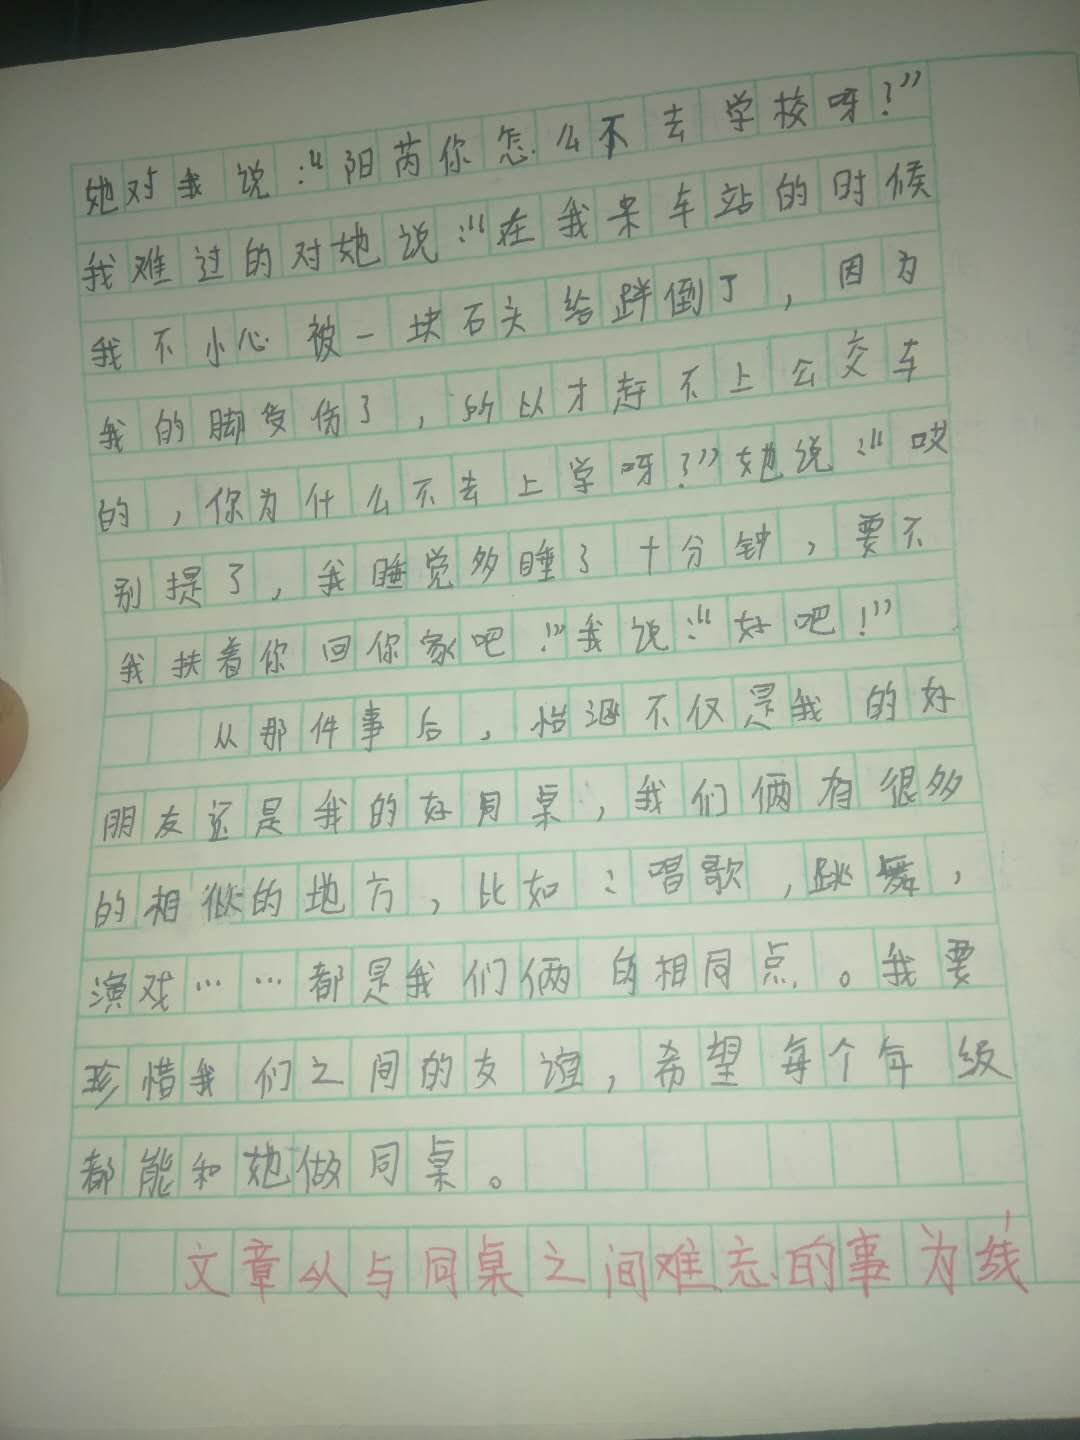 她对我说：“阳芮你怎么不去学校呀？”
我难过的对她说：“在我来车站的时候
我不小心被一块石头给跘倒了，因为
我的脚受伤了，所以才赶不上公交车
的，你为什么不去上学呀？”她说：“哎
别提了，我睡觉多睡了十分钟，要不
我扶着你回你家吧！”我说：“好吧！”
从那件事后，不仅是我的好
朋友还是我的好同桌，我们俩有很多
的相似的地方，比如：唱歌，跳舞，
演戏……都是我们俩的相同点。我要
珍惜我们之间的友谊，希望每个年级
都能和她做同桌。
文章从与同桌之间难忘的事为线